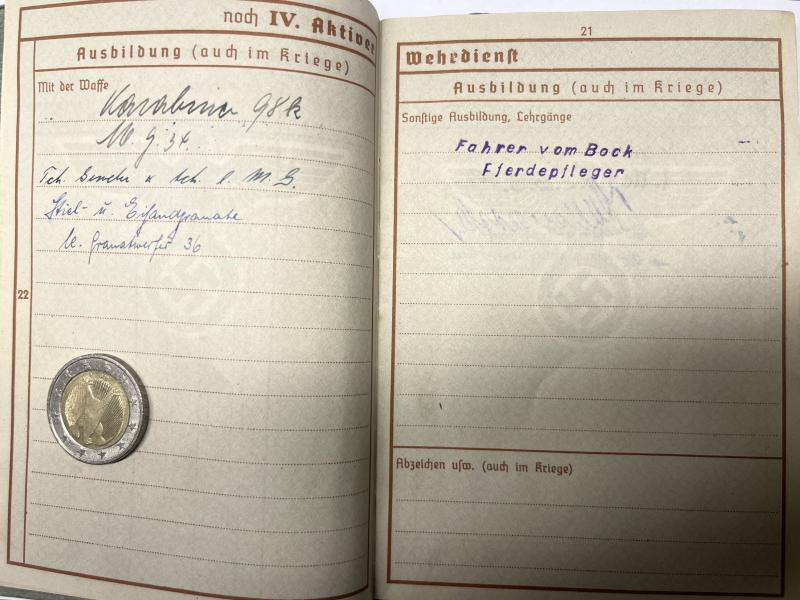 noch IV. Aktiver
Ausbildung (auch im Kriege)
Mit der Waffe
Karabiner 98k
M. G. 34.
Tch. Gewehr u tch. l. M. G.
Stiel- u. Eihandgranate
l. Granatwerfer 36
22
21
Wehrdienst
Ausbildung (auch im Kriege)
Sonstige Ausbildung, Lehrgänge
Fahrer vom Bock
Pferdepfleger
Abzeichen usw. (auch im Kriege)